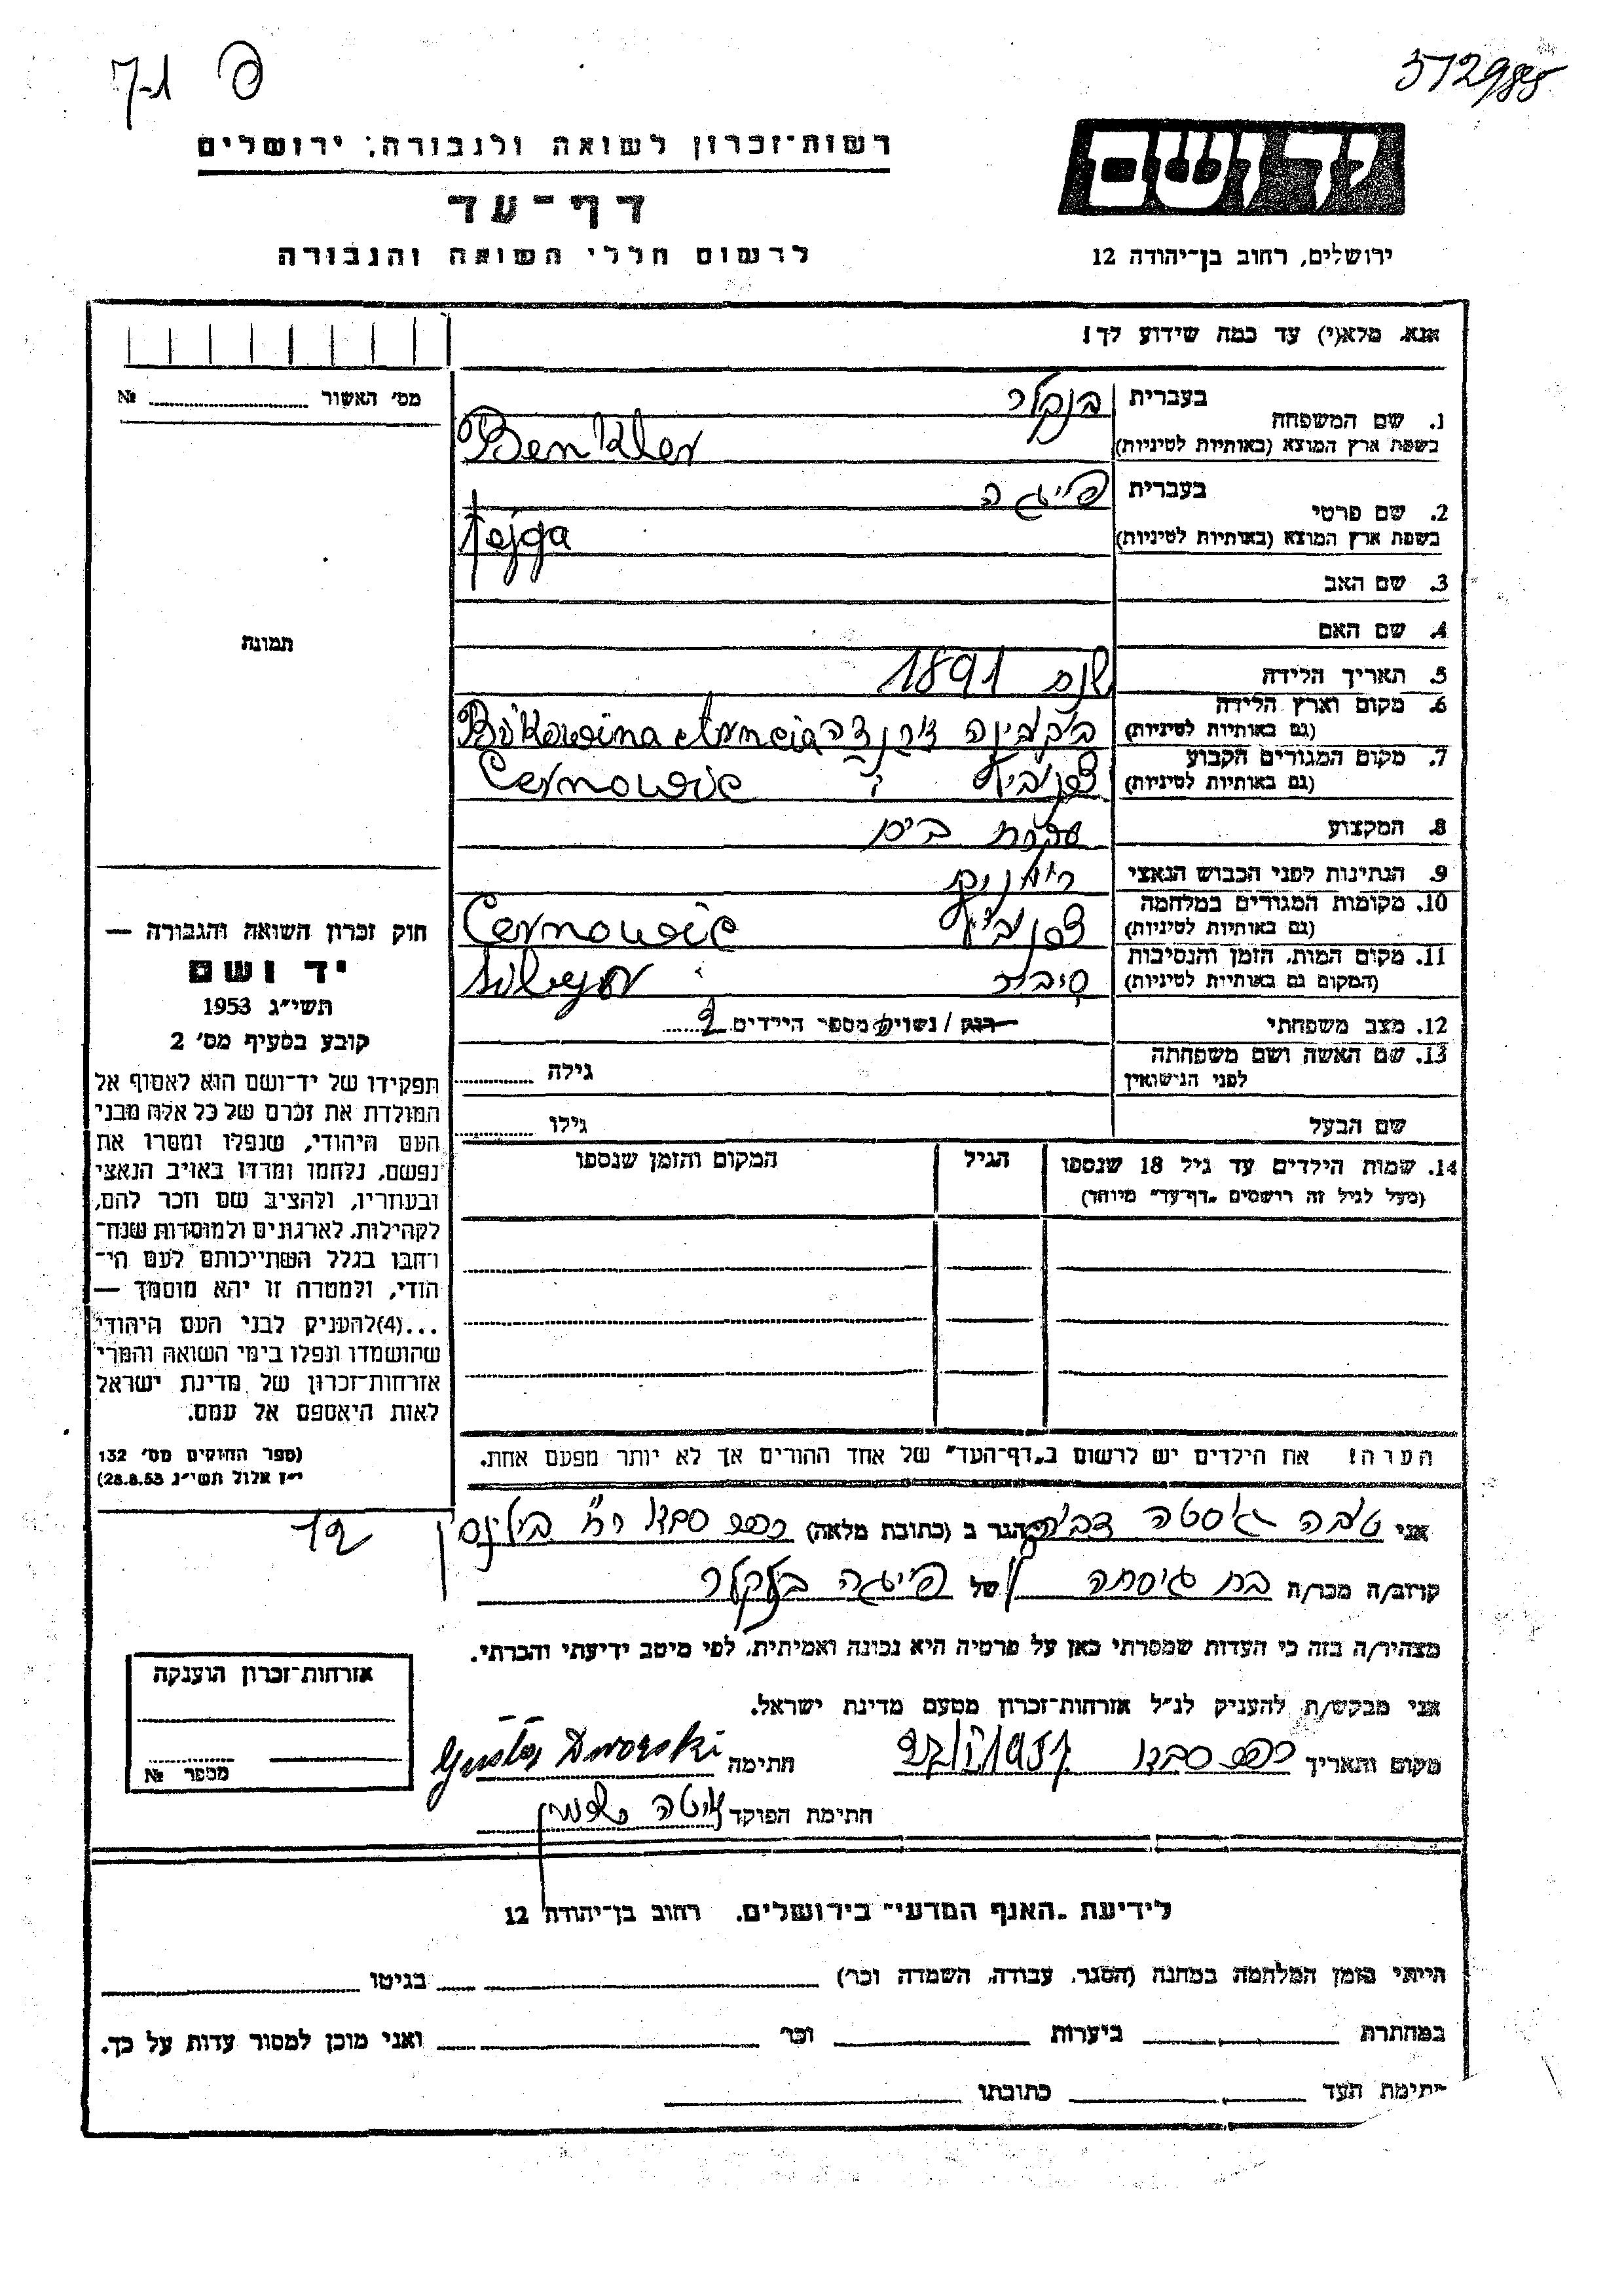 ל-7 פ
312988
רשות־זכרון לשואה ולגבורה, ירושלים
דף־עד
לרשום חללי השואה והגבורה
יד ושם
ירושלים, רחוב בן־יהודה 12
אנא, מלא(י) עד כמה שידוע לך!
מס' האשור № 
1. שם המשפחה בעברית בנקלר
בשפת ארץ המוצא (באותיות לטיניות) Benkler
2. שם פרטי בעברית פייגה
בשפת ארץ המוצא (באותיות לטיניות) Fejga
3. שם האב
4. שם האם
תמונה
5. תאריך הלידה שנת 1891
6. מקום וארץ הלידה
(גם באותיות לטיניות) Bukowina
7. מקום המגורים הקבוע
(גם באותיות לטיניות) Cernowic
8. המקצוע עקרת בית
9. הנתינות לפני הכבוש הנאצי
10. מקומות המגורים במלחמה
(גם באותיות לטיניות) Cernowic
11. מקום המות, הזמן והנסיבות
(המקום גם באותיות לטיניות) סיביר
12. מצב משפחתי רווק / נשוי מספר הילדים 2
13. שם האשה ושם משפחתה
לפני הנישואין גילה
שם הבעל גילו
14. שמות הילדים עד גיל 18 שנספו הגיל המקום והזמן שנספו
(מעל לגיל זה רושמים „דף־עד" מיוחד)
הערה! את הילדים יש לרשום ב„דף־העד" של אחד ההורים אך לא יותר מפעם אחת.
חוק זכרון השואה והגבורה —
יד ושם
תשי"ג 1953
קובע בסעיף מס' 2
תפקידו של יד־ושם הוא לאסוף אל
המולדת את זכרם של כל אלה מבני
העם היהודי, שנפלו ומסרו את
נפשם, נלחמו ומרדו באויב הנאצי
ובעוזריו, ולהציב שם וזכר להם,
לקהילות, לארגונים ולמוסדות שנח־
רחבו בגלל השתייכותם לעם הי־
הודי, ולמטרה זו יהא מוסמך —
...(4)להעניק לבני העם היהודי
שהושמדו ונפלו בימי השואה והמרי
אזרחות־זכרון של מדינת ישראל
לאות היאספם אל עמם.
(ספר החוקים מס' 132
י"ז אלול תשי"ג 28.8.53)
אני הגר ב (כתובת מלאה) כפר סבא רח' בילינסון 12
קרוב/ה מכר/ה בת גיסתה של פייגה בנקלר
מצהיר/ה בזה כי העדות שמסרתי כאן על פרטיה היא נכונה ואמיתית, לפי מיטב ידיעתי והכרתי.
אני מבקש/ת להעניק לנ"ל אזרחות־זכרון מטעם מדינת ישראל.
מקום ותאריך כפר סבא חתימה Dworski
חתימת הפוקד
אזרחות־זכרון הוענקה
מספר №
לידיעת „האגף המדעי" בירושלים, רחוב בן־יהודה 12
הייתי בזמן המלחמה במחנה (הסגר, עבודה, השמדה וכו') בגיטו
במחתרת ביערות וכו' ואני מוכן למסור עדות על כך.
חתימת העד כתובתו